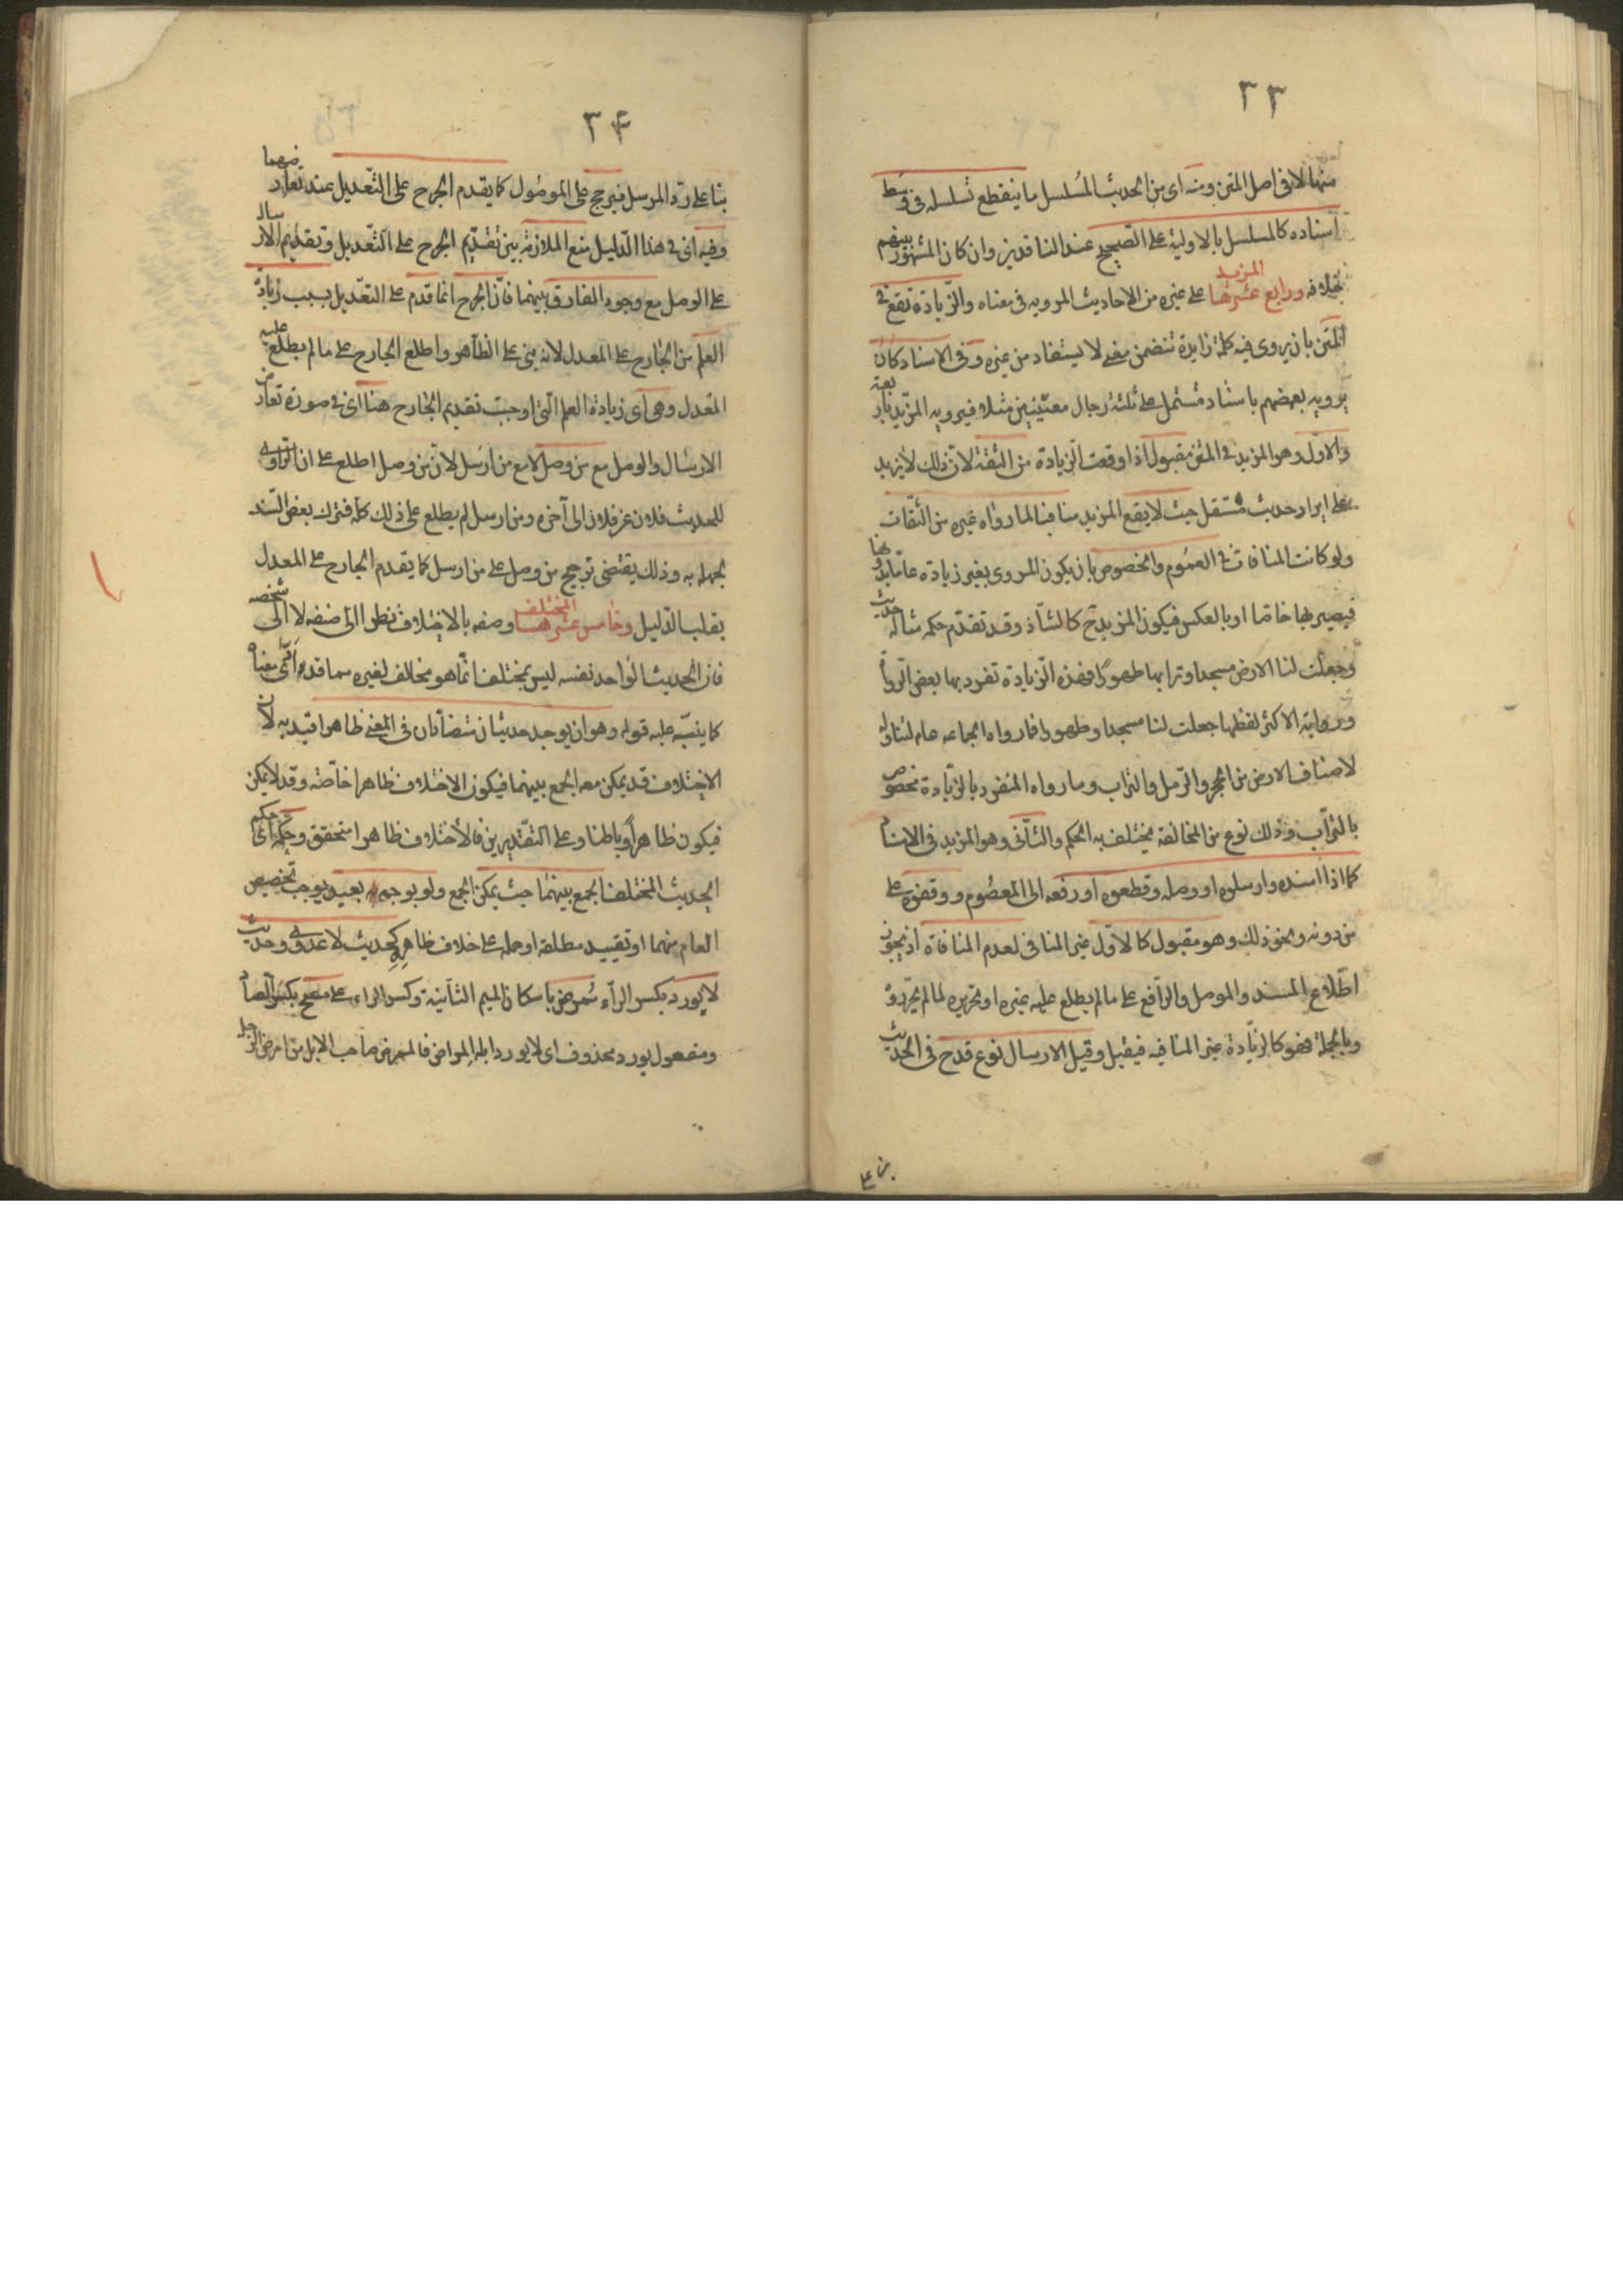 ٣٣
منها لا فى اصل المتن ومنه اى من الحديث المسلسل ما ينقطع تسلسله فى وسط
اسناده كالمسلسل بالاولية على الصحيح عند الناقدين وان كان المشهور بينهم
بخلافه ورابع عشرها المزيد على غيره من الاحاديث المرويه فى معناه والزيادة تقع فى
المتن بان يروى فيه كلمة زايدة تتضمن معنى لا يستفاد من غيره وفى الاسناد كان
يرويه بعضهم باسناد مشتمل على ثلثة رجال معينين مثلا فيرويه المزيد باربعة
والاول وهو المزيد فى المتن مقبول اذا وقعت الزيادة من الثقة لان ذلك لا يزيد
على ايراد حديث مستقل حيث لا يقع المزيد منافيا لما رواه غيره من الثقات
ولو كانت المنافات فى العموم والخصوص بان يكون المروى بغير زيادة عاما بدونها
فيصير بها خاصا او بالعكس فيكون المزيد ح كالشاذ وقد تقدم حكمه مثاله حديث
وجعلت لنا الارض مسجدا وترابها طهورا فهذه الزيادة تفرد بها بعض الرواة
ورواية الاكثر لفظها جعلت لنا مسجدا وطهورا فما رواه الجماعه عام لتناوله
لاصناف الارض من الحجر والرمل والتراب وما رواه المنفرد بالزيادة مخصوص
بالتراب وذلك نوع من المخالفة يختلف به الحكم والثانى وهو المزيد فى الاسناد
كما اذا اسنده وارسلوه او وصله وقطعوه او رفعه الى المعصوم ووقفوه على
من دونه ونحو ذلك وهو مقبول كالاول غير المنافى لعدم المنافاة اذ يجوز
اطلاع المسند والموصل والرافع على ما لم يطلع عليه غيره او تحريره لما لم يحرروه
وبالجملة فهو كالزيادة غير المنافيه فيقبل وقيل الارسال نوع قدح فى الحديث
٣۴
بناء على رد المرسل فيرجح على الموصول كما يقدم الجرح على التعديل عند تعارضهما
وفيه اى فى هذا الدليل منع الملازمة بين تقديم الجرح على التعديل وتقديم الارسال
على الوصل مع وجود الفارق بينهما فان الجرح انما قدم على التعديل بسبب زيادة
العلم من الجارح على المعدل لانه بنى على الظاهر واطلع الجارح على ما لم يطلع عليه
المعدل وهى اى زيادة العلم التى اوجبت تقديم الجارح هنا اى فى صورة تعارض
الارسال والوصل مع من وصل لا مع من ارسل لان من وصل اطلع على ان الراوى
للحديث فلان عن فلان الى آخره ومن ارسل لم يطلع على ذلك كله فترك بعض السند
لجهله به وذلك يقتضى ترجيح من وصل على من ارسل كما يقدم الجارح على المعدل
بقلب الدليل وخامس عشرها المختلف وصفه بالاختلاف نظرا الى صنفه لا الى شخصه
فان الحديث الواحد نفسه ليس بمختلف انما هو مخالف لغيره مما قد ادى معناه
كما ينبه عليه قوله وهو ان يوجد حديثان متضادان فى المعنى ظاهرا قيد به لان
الاختلاف قد يمكن معه الجمع بينهما فيكون الاختلاف ظاهرا خاصة وقد لا يمكن
فيكون ظاهرا وباطنا وعلى التقديرين فالاختلاف ظاهرا متحقق وحكمه اى حكم
الحديث المختلف الجمع بينهما حيث يمكن الجمع ولو بوجه بعيد يوجب تخصيص
العام منهما او تقييد مطلقه او حمله على خلاف ظاهره كحديث لا عدوى وحديث
لا يورد بكسر الراء ممرض باسكان الميم الثانية وكسر الراء على مصح بكسر الصاد
ومفعول يورد محذوف اى لا يورد ابله المراض فالممرض صاحب الابل من امرض الرجل